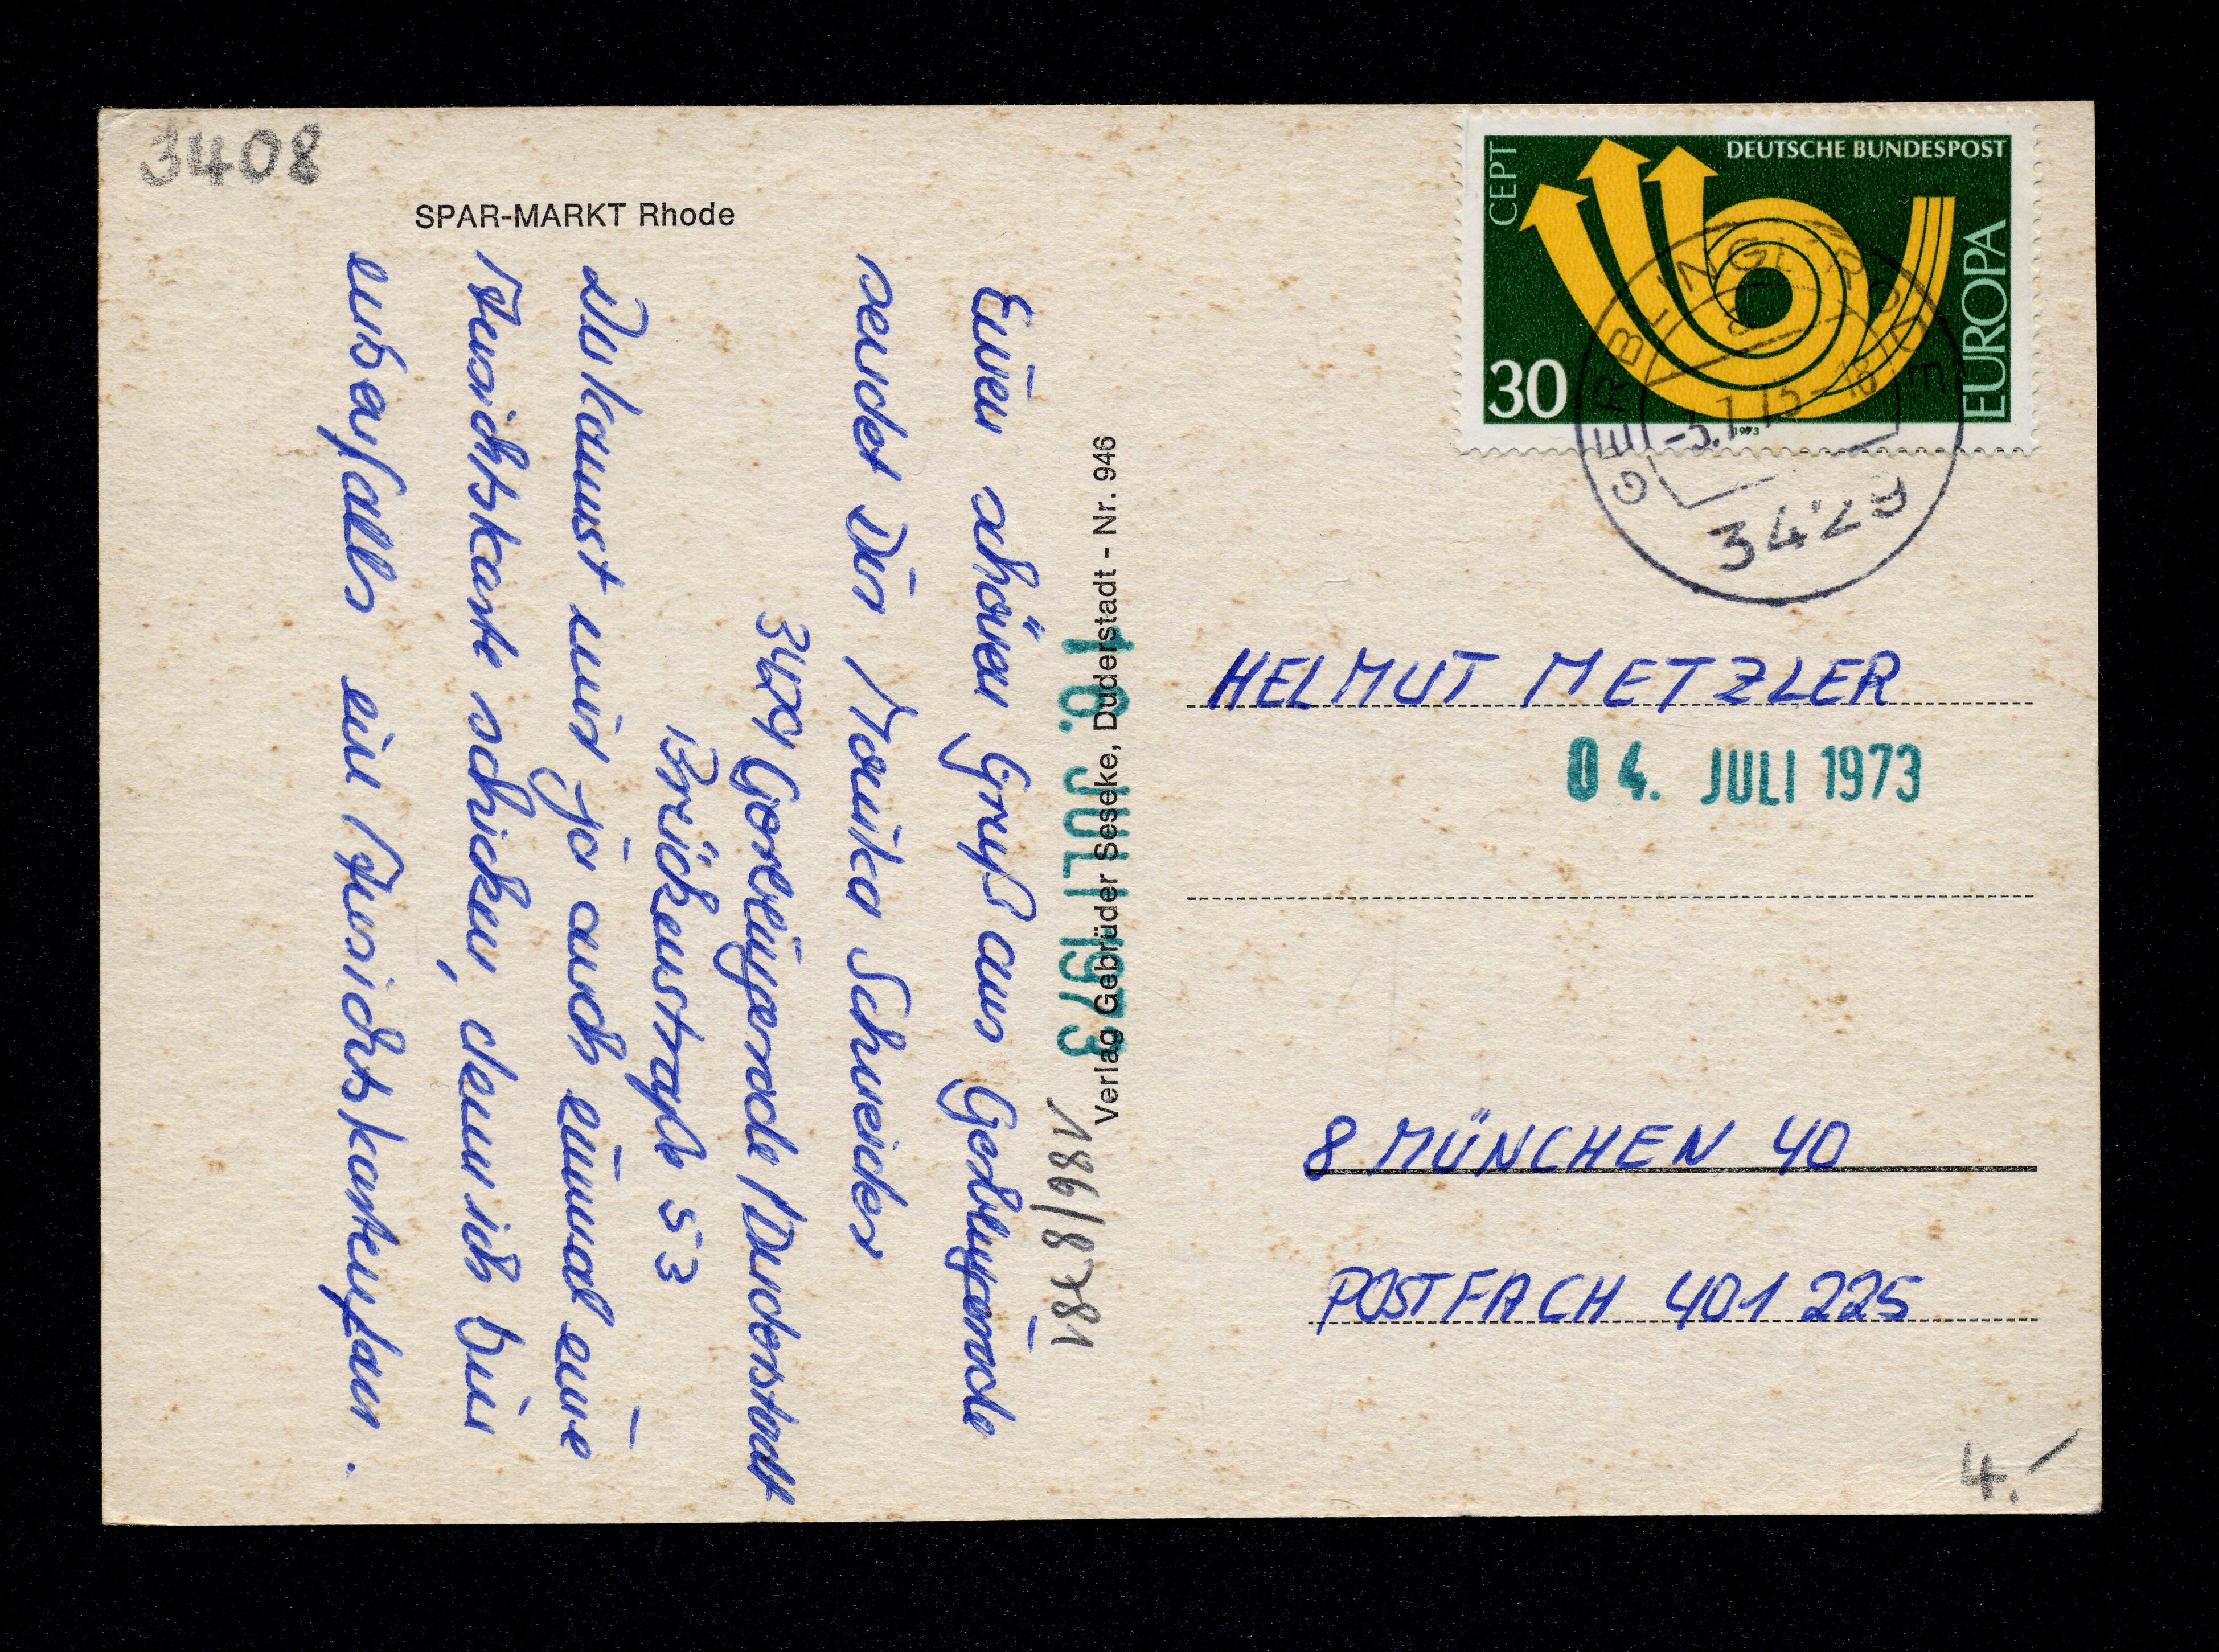 3408
SPAR-MARKT Rhode
Einen schönen Gruß aus Gerblingerode
sendet Dir Monika Schneider
3429 Gerblingerode/Duderstadt
Brückenstraße 53
Du kannst mir ja auch einmal eine
Ansichtskarte schicken, denn ich bin
ebenfalls ein Ansichtskartenfan.
Verlag Gebrüder Seseke, Duderstadt - Nr. 946
10. JULI 1973
CEPT
DEUTSCHE BUNDESPOST
EUROPA
30
1973
GERBLINGERODE
3429
HELMUT METZLER
04. JULI 1973
8 MÜNCHEN 40
POSTFACH 401 225
4.